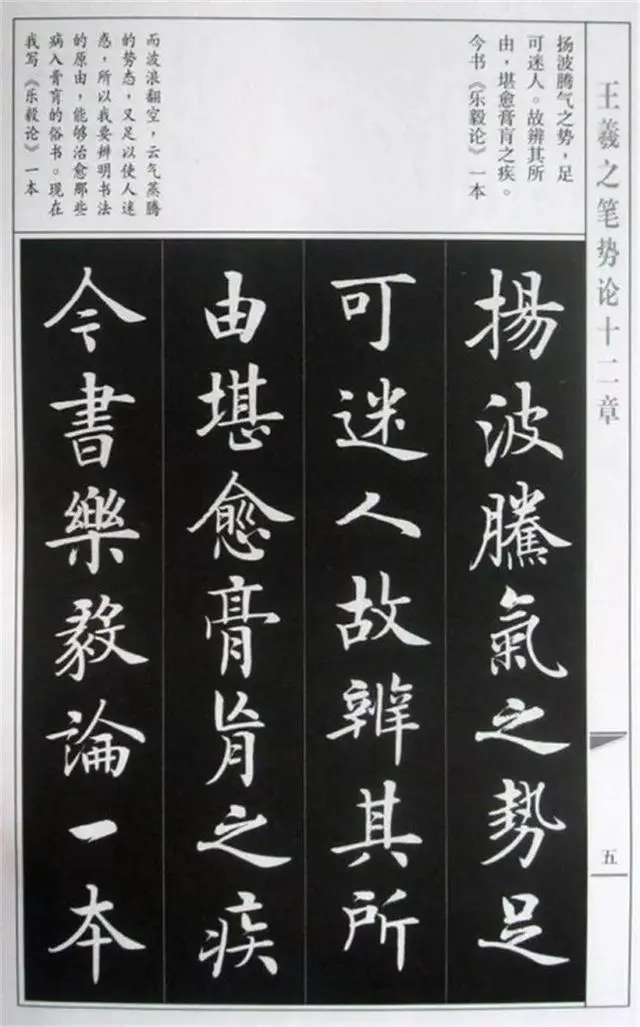 王羲之笔势论十二章
五
扬波腾气之势，足
可迷人。故辨其所
由，堪愈膏肓之疾。
今书《乐毅论》一本
而波浪翻空，云气蒸腾
的势态，又足以使人迷
惑，所以我要辨明书法
的原由，能够治愈那些
病入膏肓的俗书。现在
我写《乐毅论》一本
揚波騰氣之勢足
可迷人故辨其所
由堪愈膏肓之疾
今書樂毅論一本